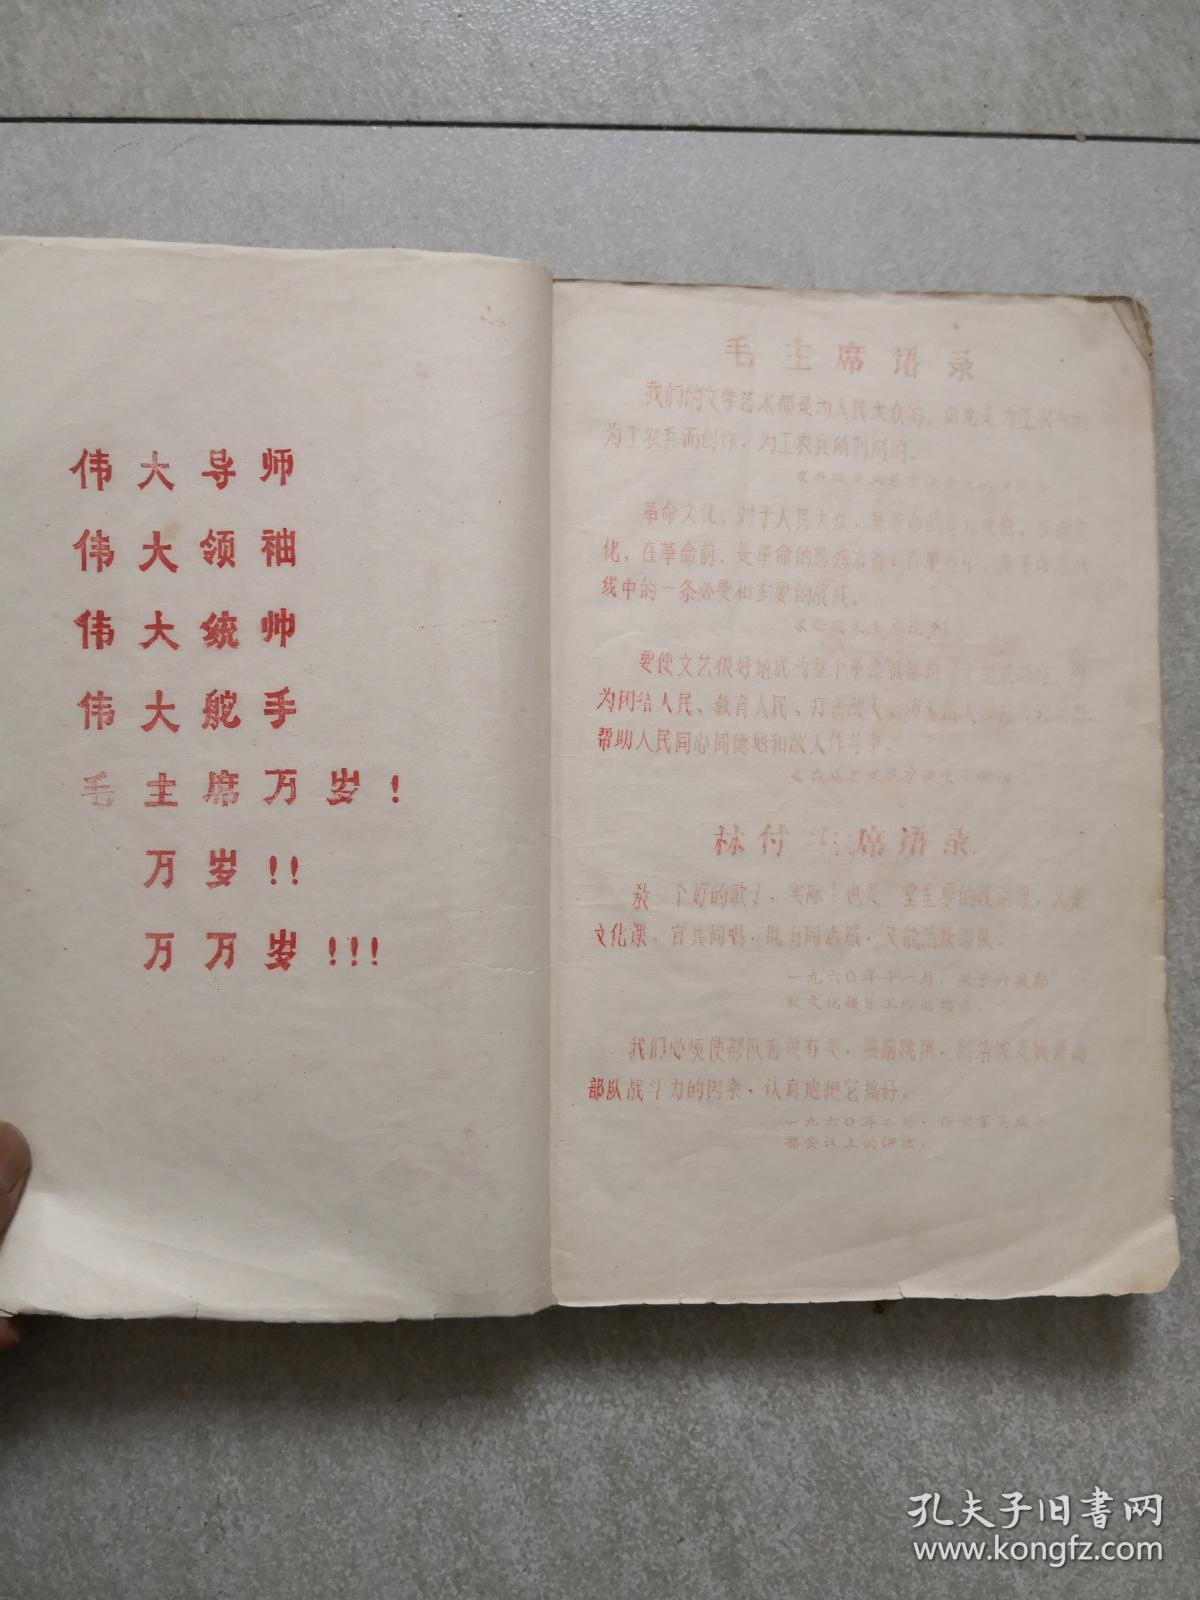 伟大导师
伟大领袖
伟大统帅
伟大舵手
毛主席万岁!
万岁!!
万万岁!!!
毛主席语录
我们的文学艺术都是为人民大众的，首先是为工农兵的
为工农兵而创作，为工农兵所利用的。
革命文化，对于人民大众，是革命的
化，在革命前，是革命的思想准备；在革命中，是革命总战
线中的一条必要和重要的战线。
《新民主主义论》
要使文艺很好地成为整个革命机器的一个组成部分，作
为团结人民、教育人民、打击敌人、消灭敌人的
帮助人民同心同德地和敌人作斗争。
林付主席语录
教一个好的歌子，实际上也是一堂重要的政治课，又是
文化课。官兵同唱，既有同志感，又能活跃部队。
一九六〇年十一月，关于开展部
队文化娱乐工作的指示。
我们必须使部队有说有笑，蹦蹦跳跳，
部队战斗力的因素，认真地把它搞好。
一九六〇年二月，在
部会议上的讲话。
孔夫子旧书网
www.kongfz.com